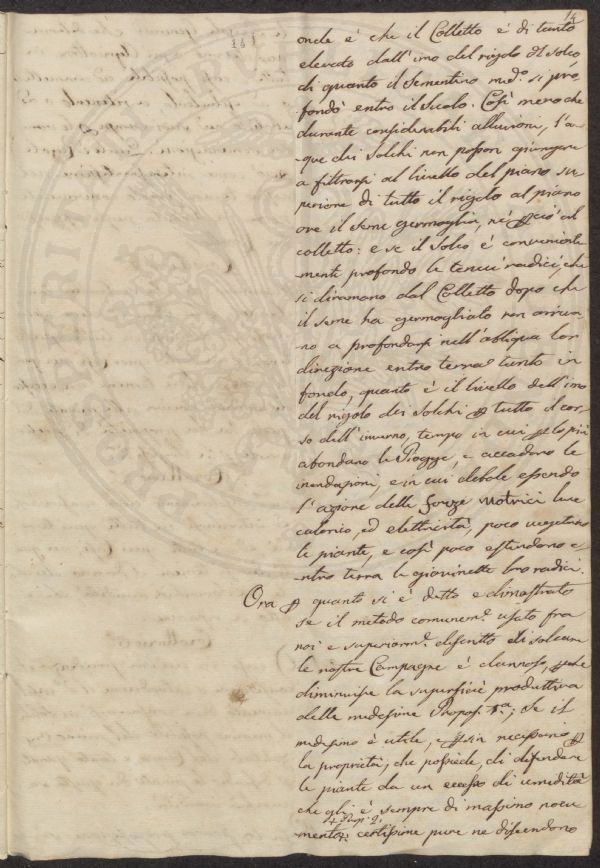 14
onde è che il Colletto è di tanto
elevato dall'imo del rigolo del solco
di quanto il Sementino med.o si pro
fondò entro il Suolo. Così mero che
durante considerabili alluvioni, l'a-
que dei Solchi non possono giungere
a filtrarsi al livello del piano su
periore di tutto il rigolo al piano
ove il seme germoglia, nè perciò al
colletto: e se il Solco è conveniente
mente profondo le tenui radici, che
si diramano dal Colletto dopo che
il seme ha germogliato non arriva
no a profondarsi nell'obliqua lor
direzione entro terra tanto in
fondo, quanto è il livello dell'imo
del rigolo dei Solchi per tutto il cor
so dell'inverno, tempo in cui più
abondano le Piogge, e accadono le
inondazioni, e in cui debole essendo
l'azione delle forze motrici luce
calorico, ed elettricità, poco vegetano
le piante, e così poco estendono e-
ntro terra le giovinette loro radici.
Ora per quanto si è detto e dimostrato
se il metodo comunem.e usato fra
noi e superiorm.e descritto di solcare
le nostre Campagne è dannoso, perche
diminuisce la superficie produttiva
delle medesime Propos. 1.a; Se il
medesimo è utile, e necessario per
la proprietà, che possiede, di difendere
le piante da un eccesso di umidità
che gli è sempre di massimo nocu
+ Prop. 2.
mento +: certissime pure ne discendono